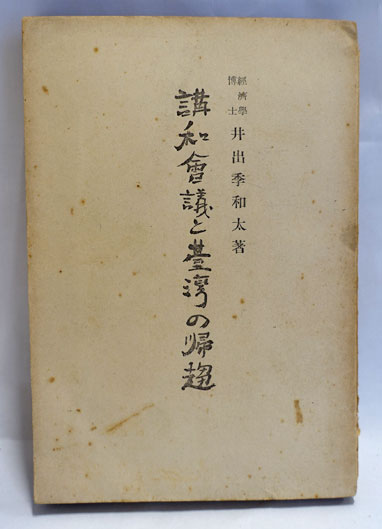 經濟學博士 井出季和太著
講和會議と臺灣の帰趨